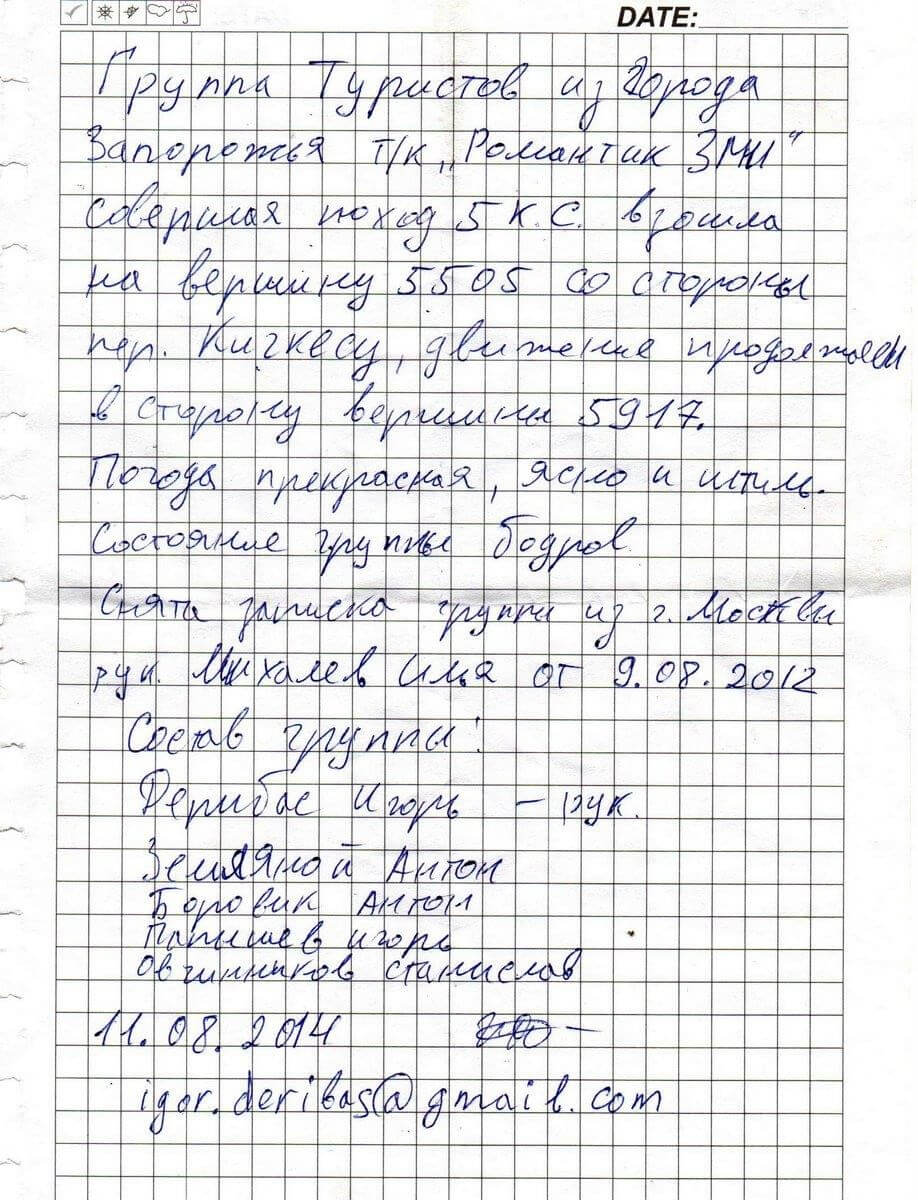 DATE:
Группа Туристов из Города
Запорожья т/к „Романтик ЗМИ"
совершая поход 5 к.с. взошла
на вершину 5505 со стороны
пер. Кичкесу, движение продолжаем
в сторону вершины 5917.
Погода прекрасная, ясно и штиль.
Состояние группы бодров
Снята записка группы из г. Москвы
рук. Михалев Илья от 9.08.2012
Состав группы:
Дерибас Игорь – рук.
Земляной Антон
Боровик Антон
Папышев Игорь
Овчинников Станислав
11.08.2014
igor.deribas@gmail.com